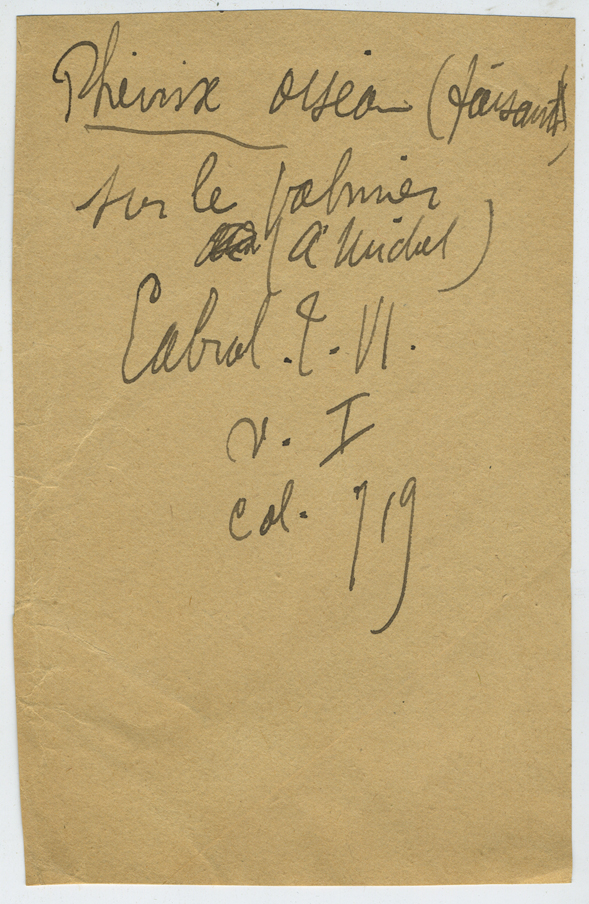 Phénix oiseau (faisant)
sur le palmier
(A Michel)
Cabrol. t. VI.
v. I
col. 719